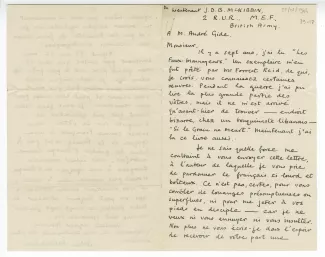 Lieutenant J.D.B. McKIBBIN,
2 R.U.R., M.E.F.,
British Army
A M. André Gide
Monsieur,
Il y a sept ans, j'ai lu "Les
Faux Monnayeurs". Un exemplaire m'en
fut prêté par Mr Forrest Reid, de qui,
je crois, vous connaissez certaines
œuvres. Pendant la guerre j'ai pu
lire la plus grande partie des
vôtres, mais il ne m'est arrivé
qu'avant-hier de trouver — endroit
bizarre, chez un bouquiniste libanais —
"Si le Grain ne Meurt". Maintenant j'ai
lu ce livre aussi.
Je ne sais quelle force me
contraint à vous envoyer cette lettre,
à l'auteur de laquelle je vous prie
de pardonner le français si lourd et
boiteux. Ce n'est pas, certes, pour vous
combler de louanges présomptueuses ou
superflues, ni pour me jeter à vos
pieds en disciple — car je ne
veux ni vous ennuyer ni vous insulter.
Non plus ne vous écris-je dans l'espoir
de recevoir de votre part une